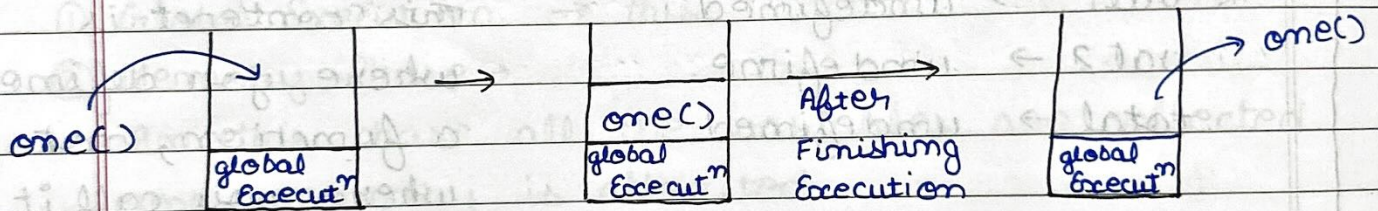 one()
global
Execut^n
one()
global
Execut^n
After
Finishing
Execution
global
Execut^n
one()